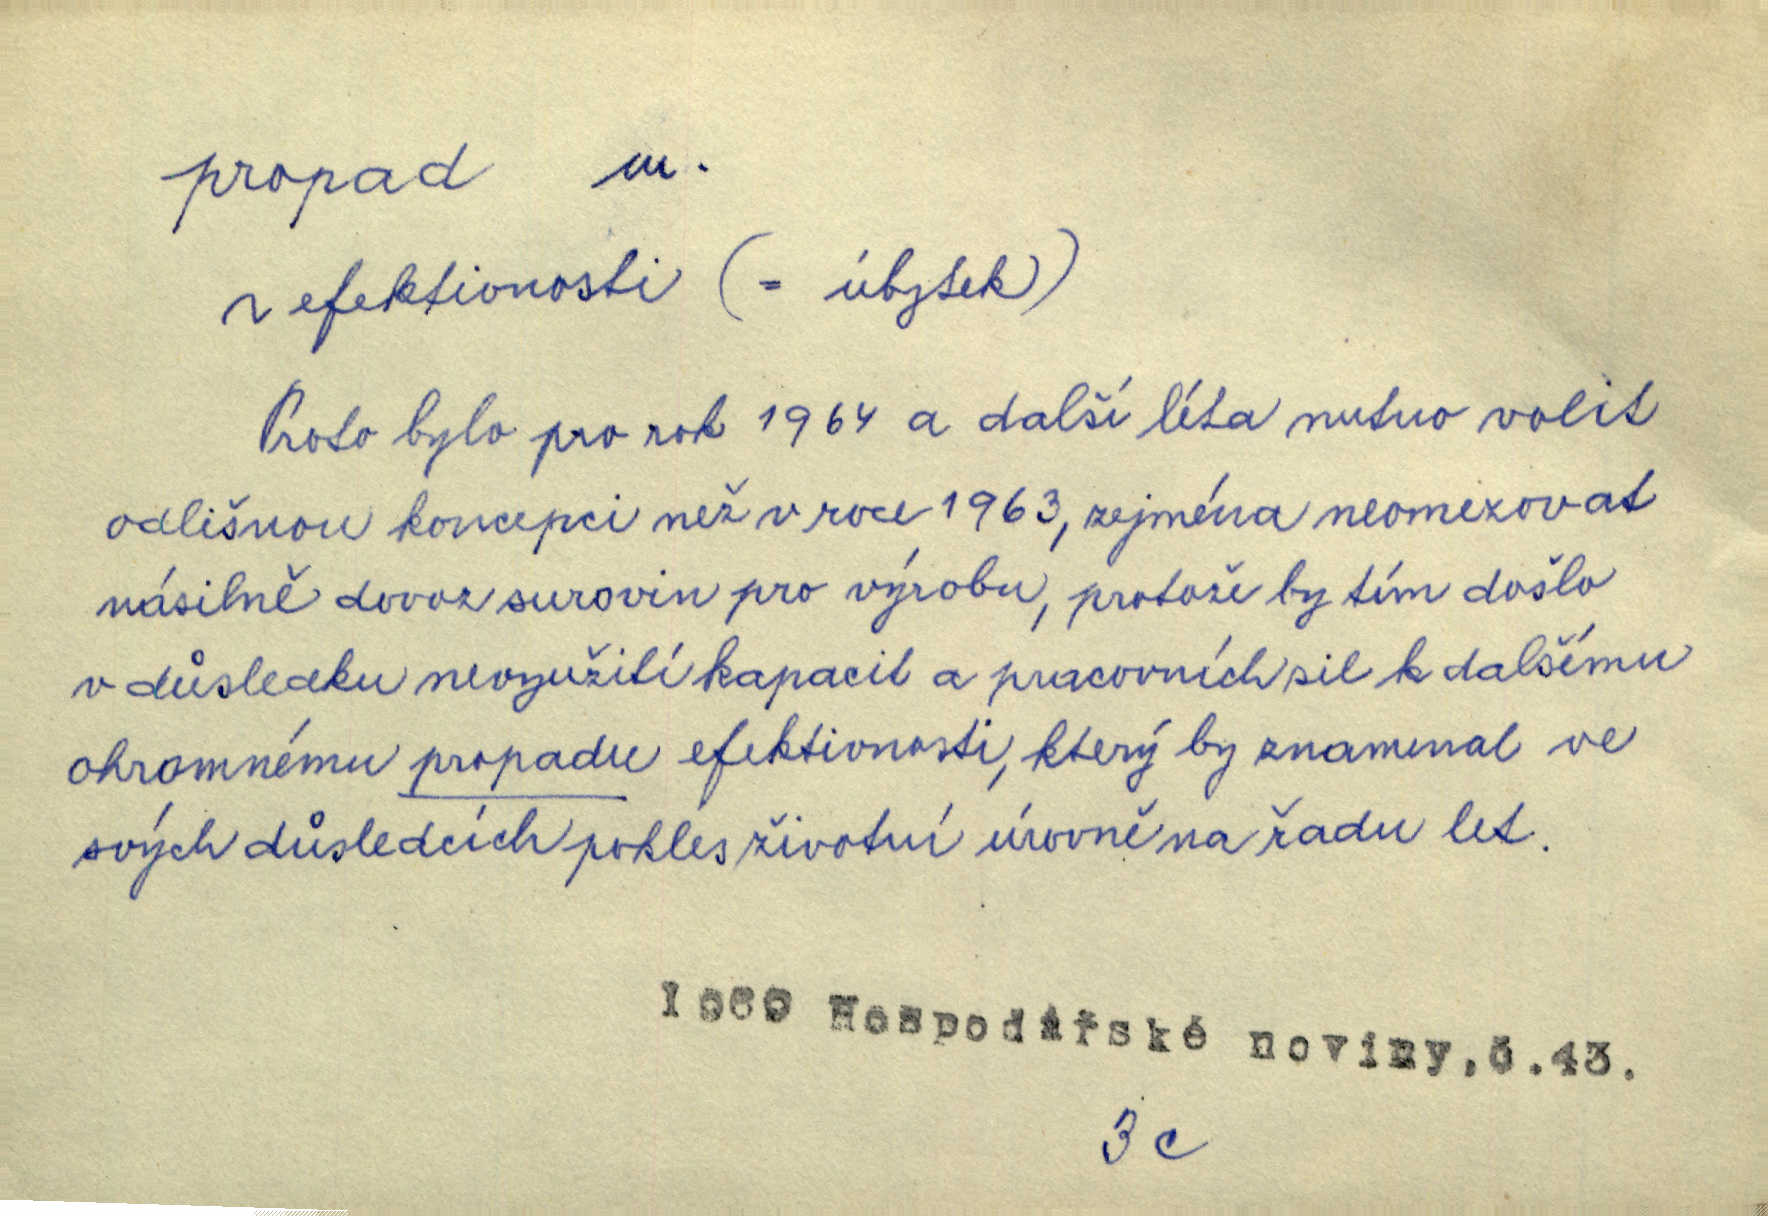 propad m.
v efektivnosti (= úbytek)
Proto bylo pro rok 1964 a další léta nutno volit
odlišnou koncepci než v roce 1963, zejména neomezovat
násilně dovoz surovin pro výrobu, protože by tím došlo
v důsledku nevyužití kapacit a pracovních sil k dalšímu
ohromnému propadu efektivnosti, který by znamenal ve
svých důsledcích pokles životní úrovně na řadu let.
1969 Hospodářské noviny, č.43.
3c